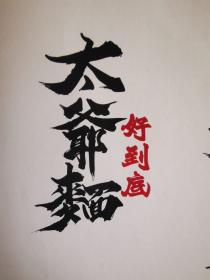 太爺麵
好到底